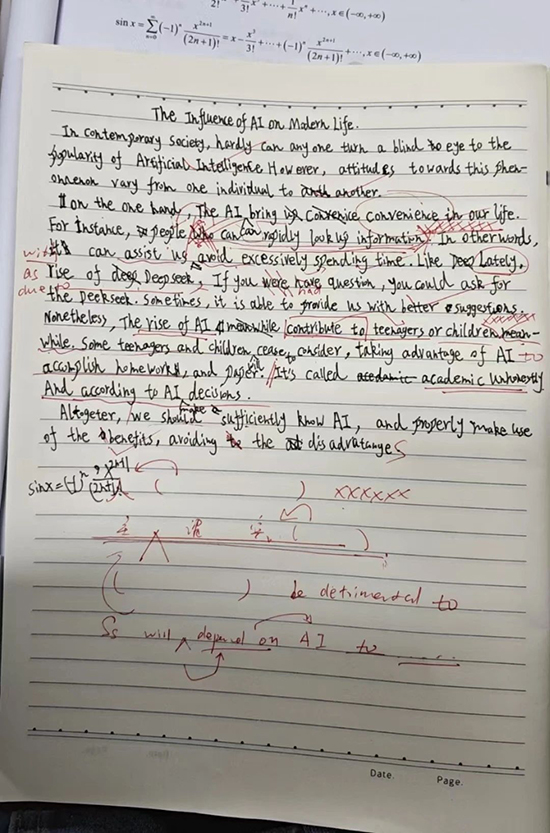 2! 3! n!
sin x = ∑ (-1)ⁿ x²ⁿ⁺¹/(2n+1)! = x - x³/3! + ⋯ + (-1)ⁿ x²ⁿ⁺¹/(2n+1)! + ⋯, x∈(-∞,+∞)
The Influence of AI on Modern Life.
In contemporary society, hardly can any one turn a blind to eye to the
popularity of Artificial Intelligence However, attitudes towards this phen-
onmenon vary from one individual to another.
on the one hand, The AI bring us convenience in our life.
For Instance, people who can can rapidly look us information. In other words,
with
can assist us avoid excessively spending time. Like Lately,
as rise of Deepseek, If you were have question, you could ask for
had
due to
the Deekseek. Sometimes, it is able to provide us with better suggestions.
Nonetheless, The rise of AI meanwhile contribute to teenagers or children mean-
while. Some teenagers and children cease to consider, taking advantage of AI to
accomplish homework, and paper. It's called academic unhonestly
And according to AI decisions.
make a
Altogeter, we should sufficiently know AI, and properly make use
of the benefits, avoiding the disadvatanges
sinx=(-1)ⁿ x²ⁿ⁺¹/(2n+1)!
( ) xxxxxx
主 谓 宾 ( )
( ) be detrimental to
Ss will depend on AI to
Date. Page.